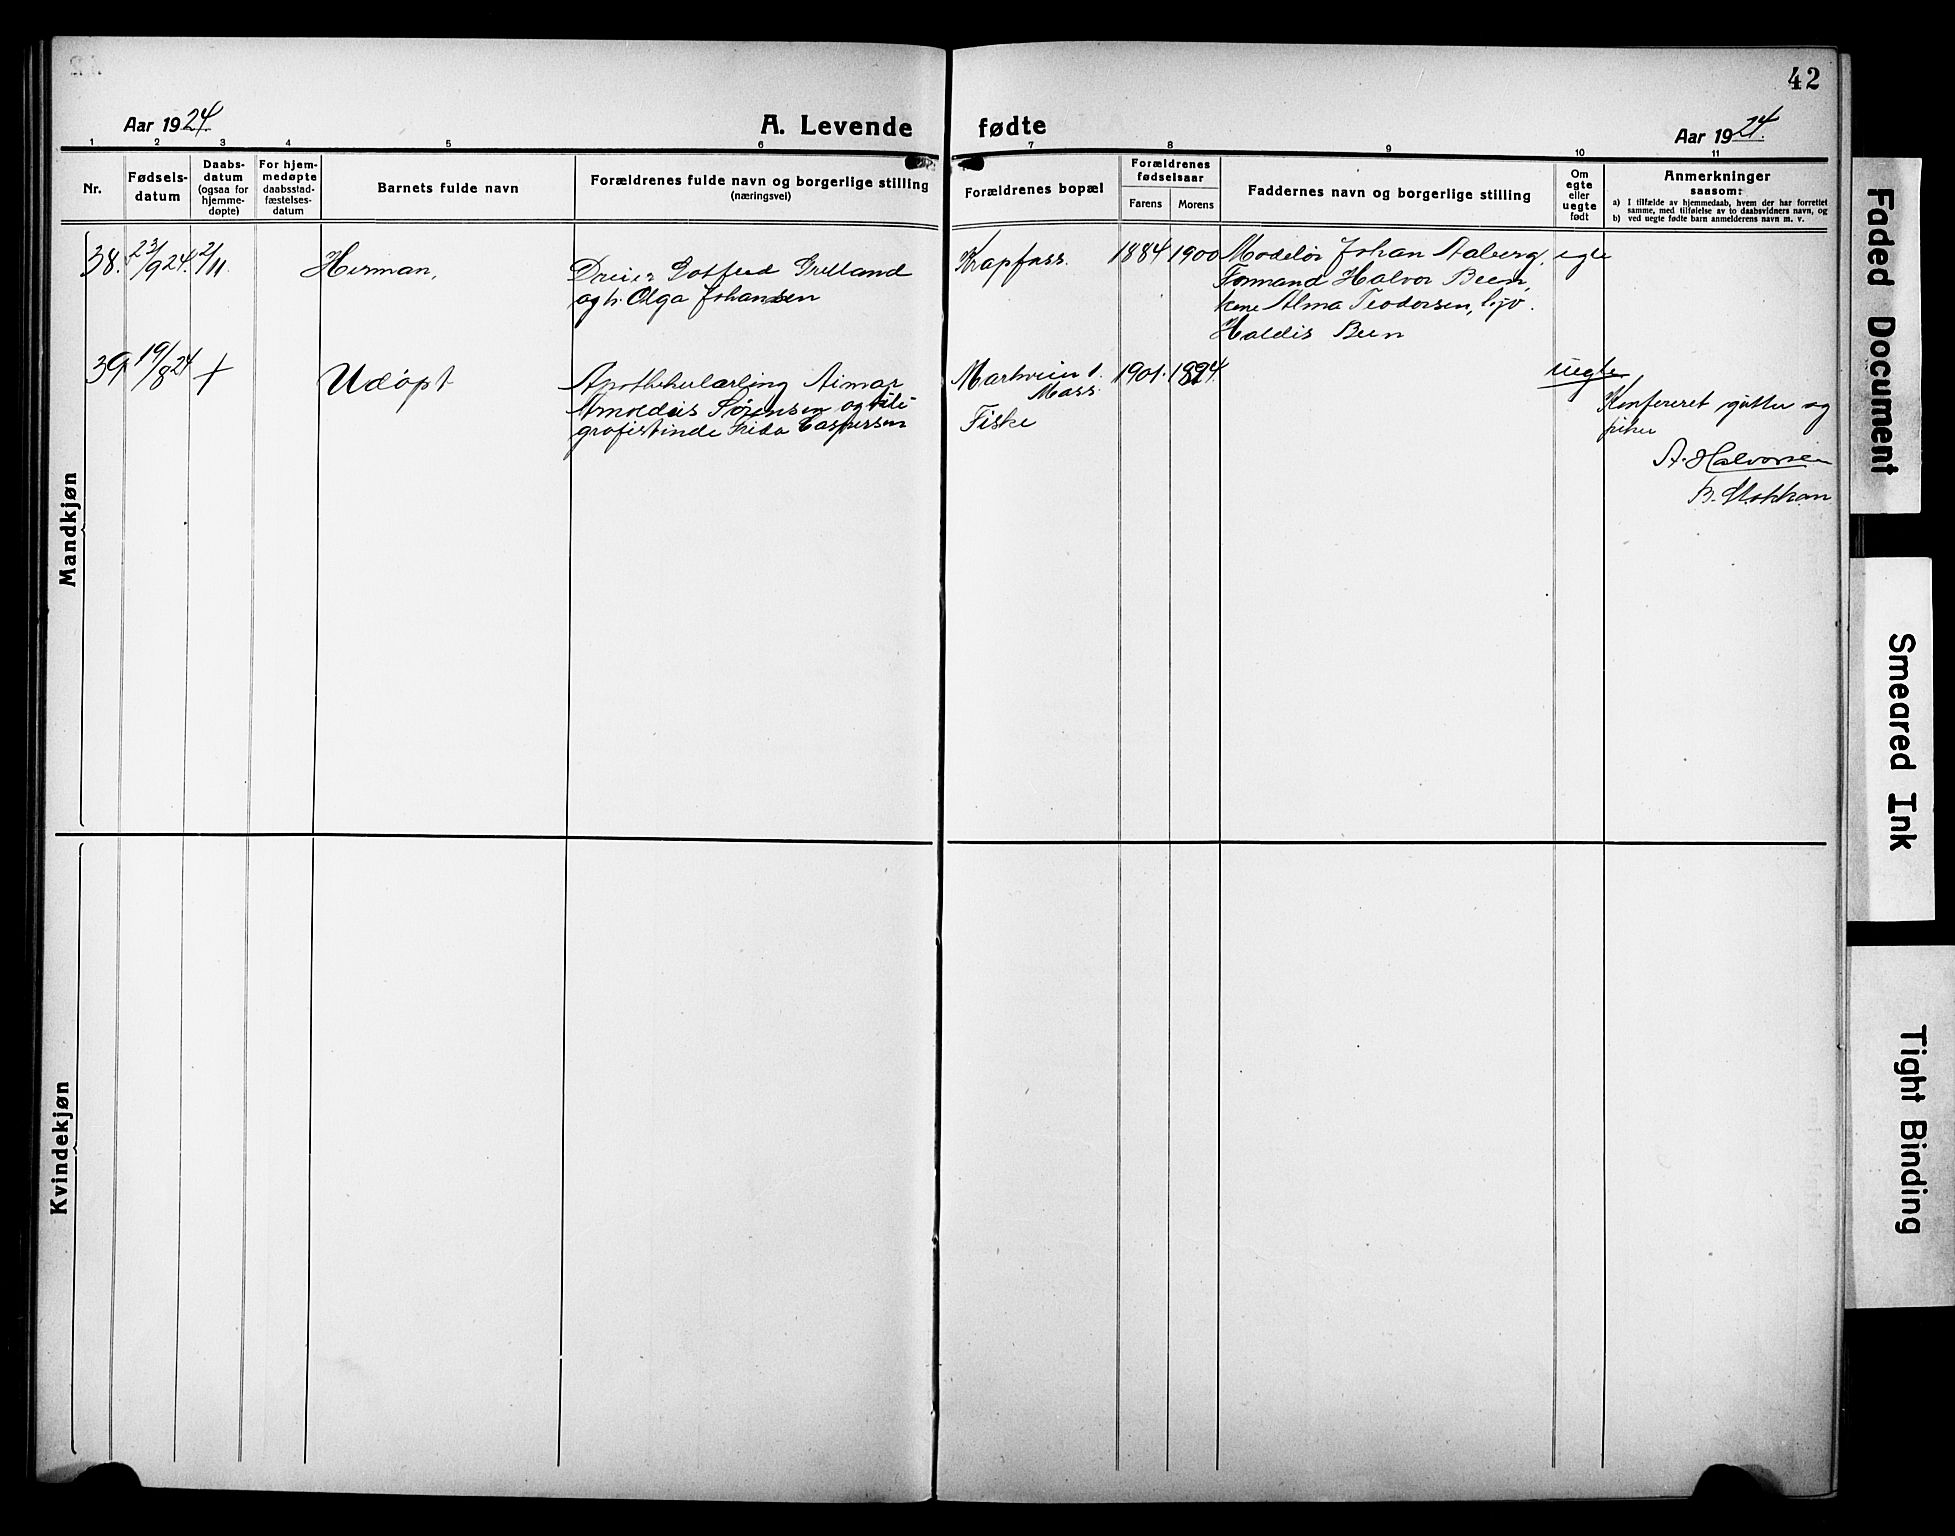 42
Aar 1924.
A. Levende fødte
Aar 1924.
1 2 3 4 5 6 7 8 9 10 11
Nr.
Fødsels-
datum
Daabs-
datum
(ogsaa for
hjemme-
døpte)
For hjem-
medøpte
daabsstad-
fæstelses-
datum
Barnets fulde navn
Forældrenes fulde navn og borgerlige stilling
(næringsvei)
Forældrenes bopæl
Forældrenes
fødselsaar
Farens
Morens
Faddernes navn og borgerlige stilling
Om
egte
eller
uegte
født
Anmerkninger
saasom:
a) I tilfælde av hjemmedaab, hvem der har forrettet
samme, med tilføielse av to daabsvidners navn, og
b) ved uegte fødte barn anmelderens navn m. v.
Mandkjøn
38.
23/9 24.
2/11.
Herman,
Dreier Gotfred Grelland
og h. Olga Johansen
Kapfoss.
1884
1900
Modelør Johan Aaberg,
Formand Halvor Been,
kone Alma Teodorsen, logv.
Haldis Been
egte
39
19/8 24
+
Udøpt
Apothekerlærling Aimar
Arnoldus Sørensen og tele-
grafistinde Frida Caspersen
Markveien 1.
Moss.
Fiske
1901.
1894.
uegte
Konfereret gutter og
piker
A. Halvorsen
B. Stokkan
Kvindekjøn
Faded Document
Smeared Ink
Tight Binding